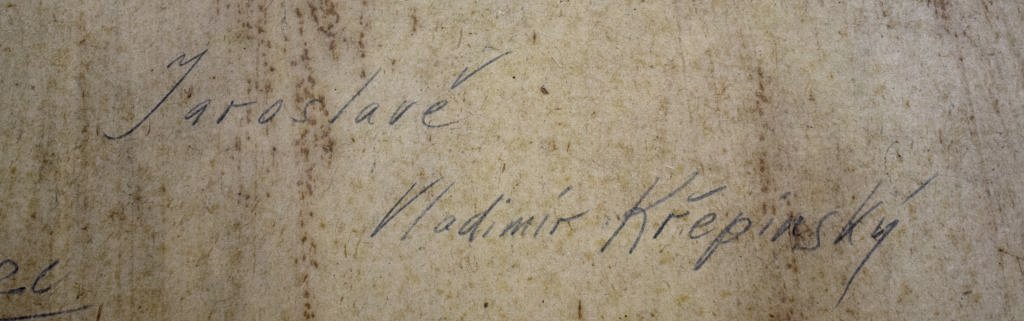 Jaroslavě
Vladimír Křepinský